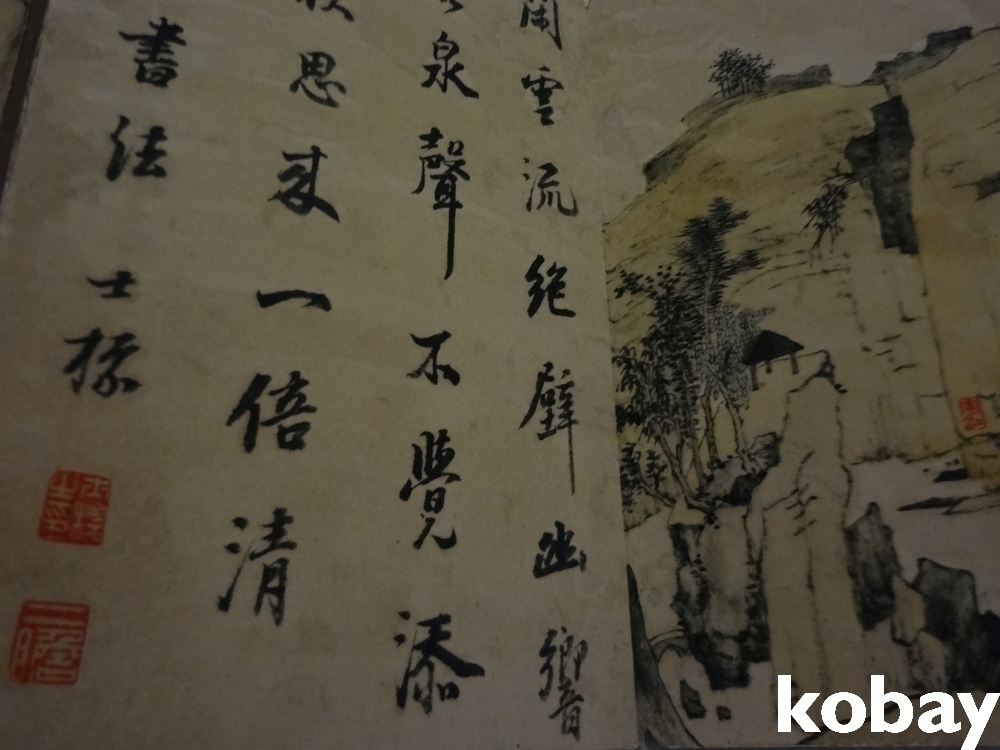 閑雲流絶壁幽響
泉聲不覺添
思来一倍清
書法
士標
kobay